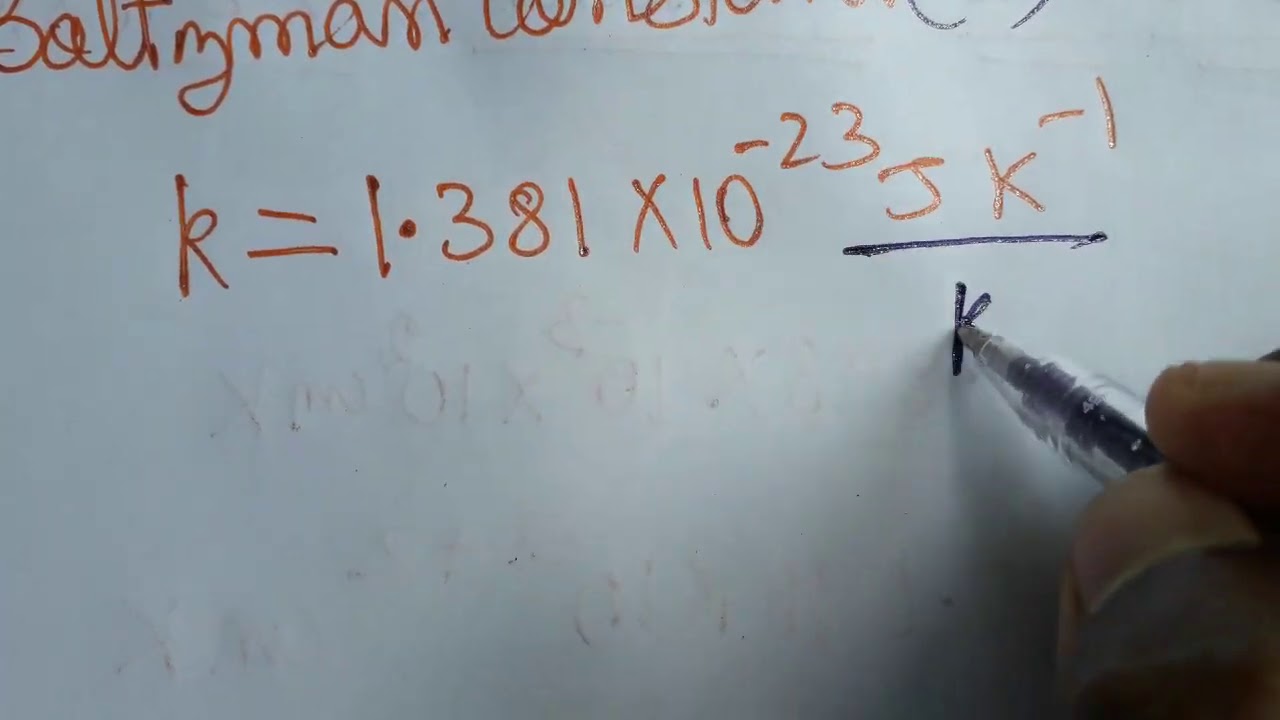 Boltzman Constant ( )
k = 1.381 × 10⁻²³ J K⁻¹
K